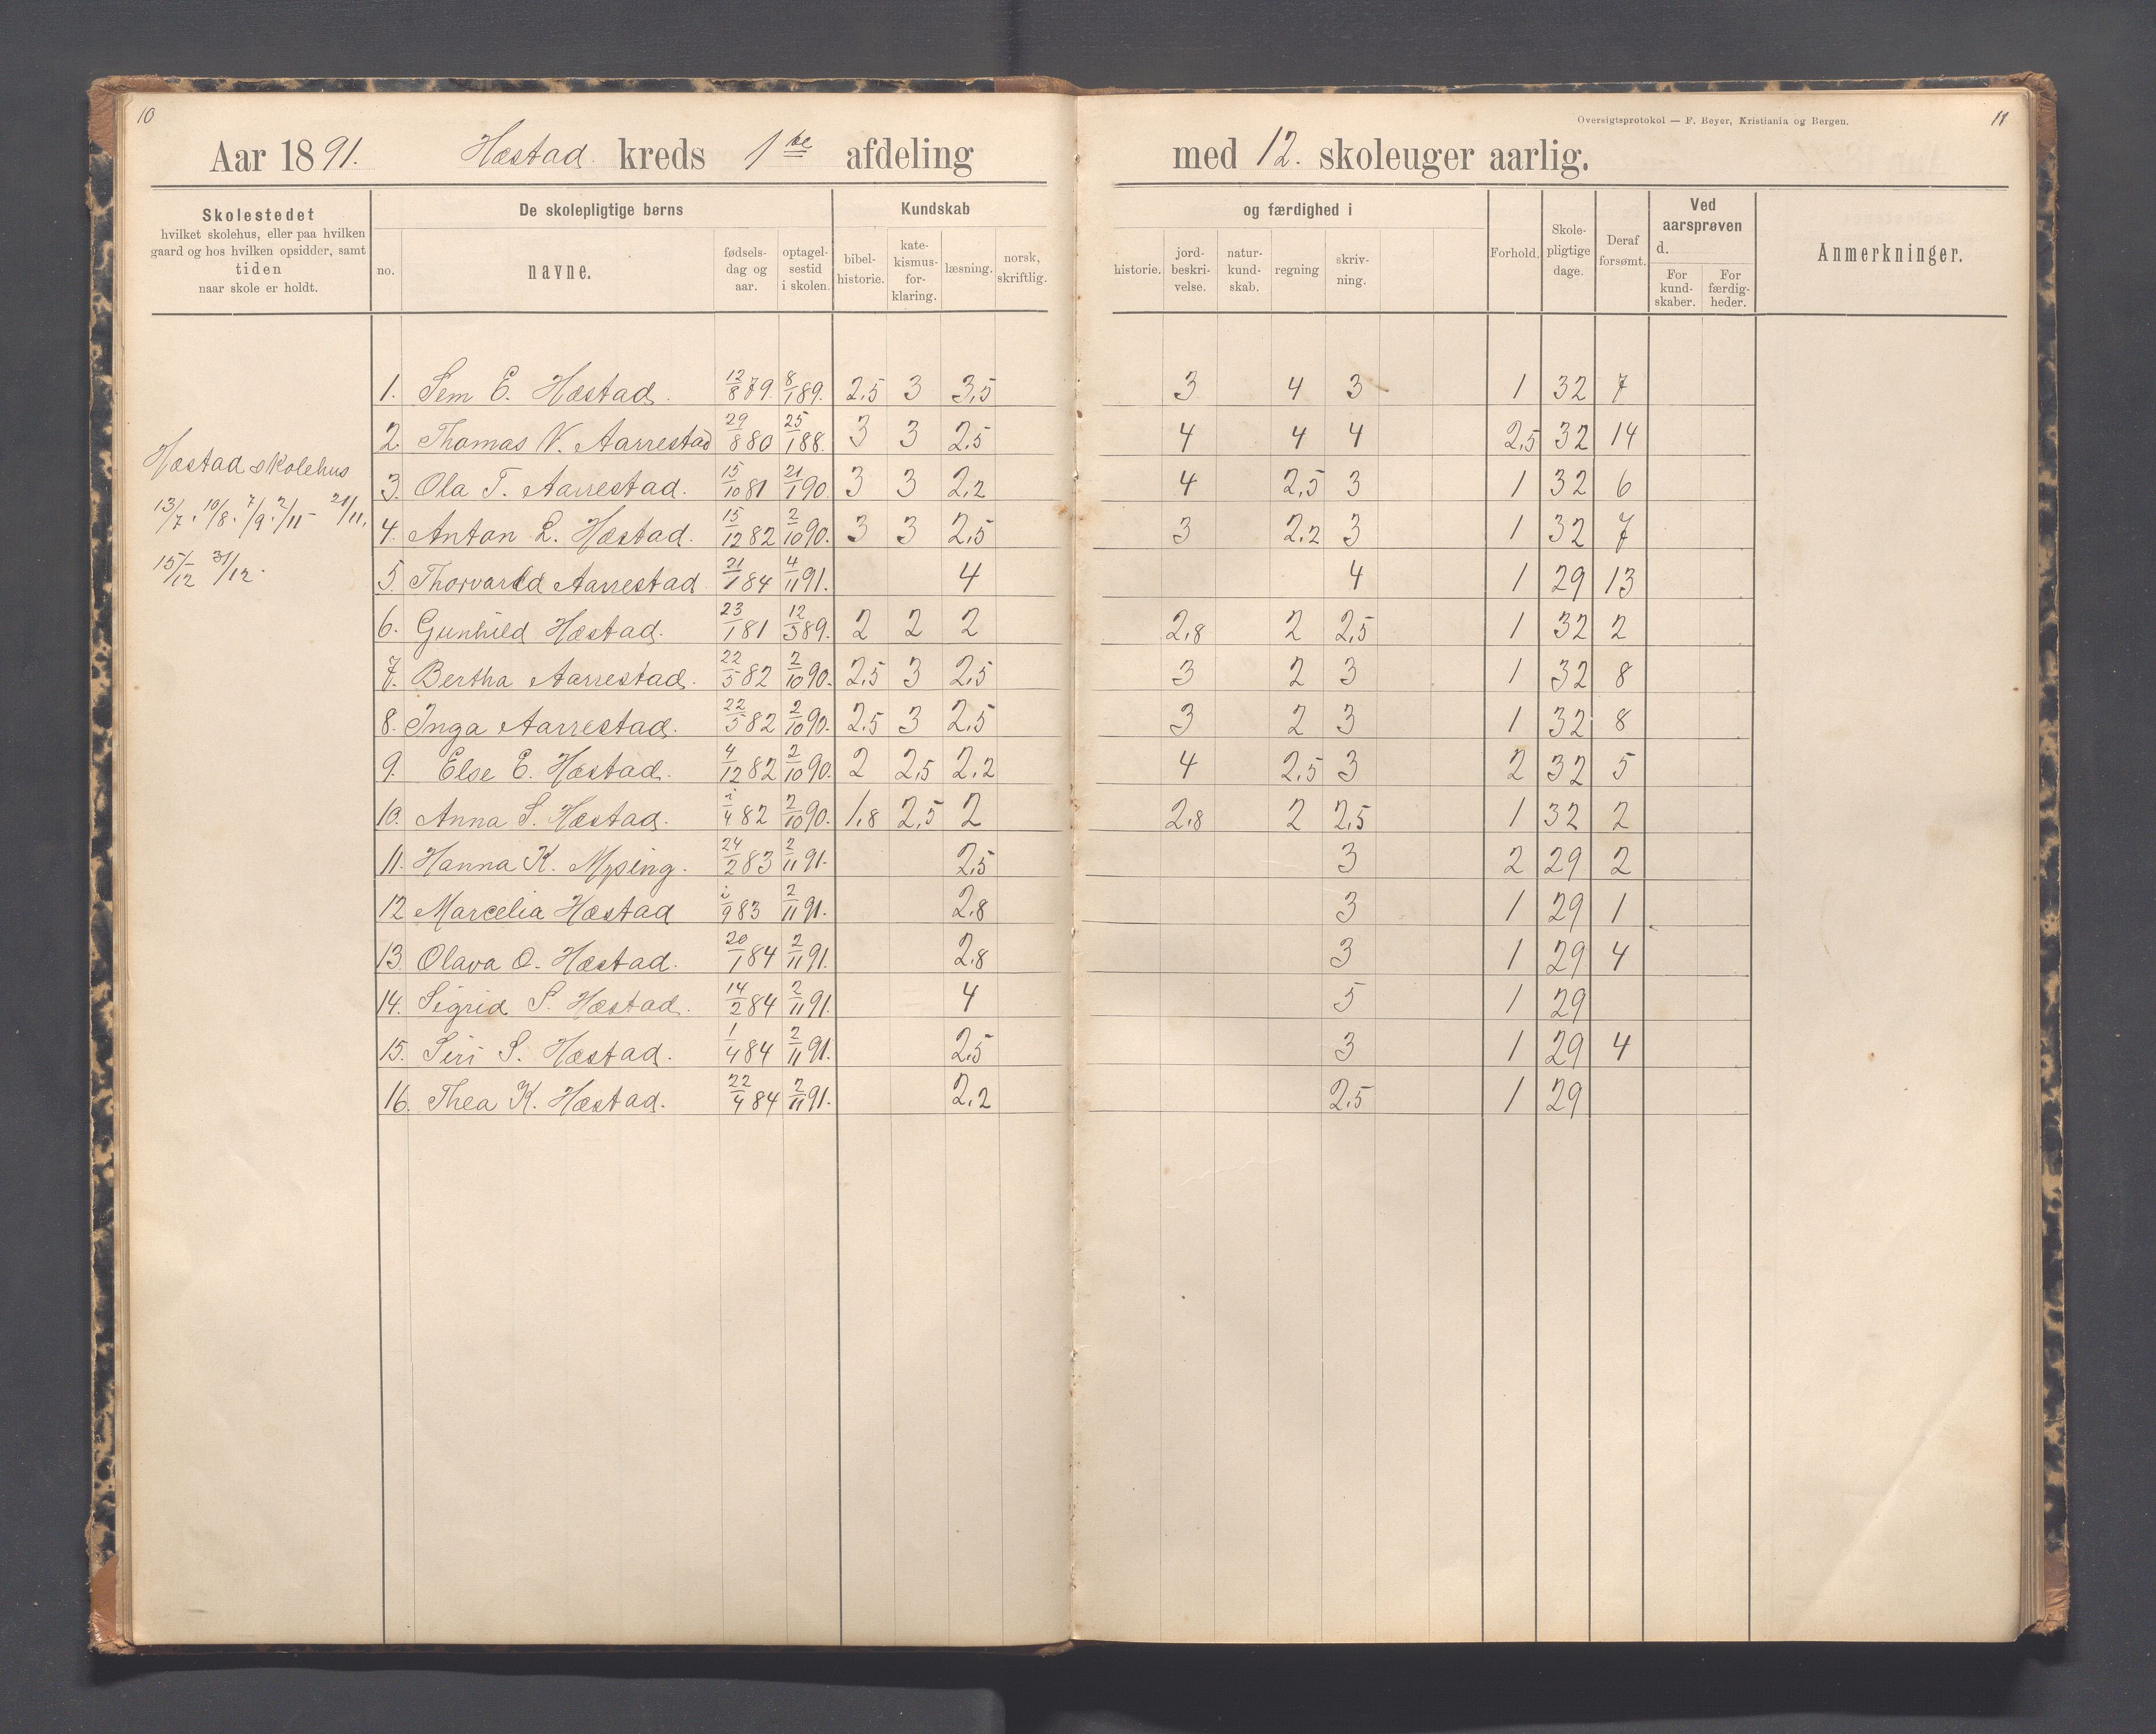 10
Aar 1891. Hæstad kreds 1ste afdeling
Oversigtsprotokol — F. Beyer, Kristiania og Bergen.
11
med 12. skoleuger aarlig.
Skolestedet
hvilket skolehus, eller paa hvilken
gaard og hos hvilken opsidder, samt
tiden
naar skole er holdt.
De skolepligtige børns
no.
navne.
fødsels-
dag og
aar.
optagel-
sestid
i skolen.
Kundskab
bibel-
historie.
kate-
kismus-
for-
klaring.
læsning.
norsk,
skriftlig.
og færdighed i
historie.
jord-
beskri-
velse.
natur-
kund-
skab.
regning
skriv-
ning.
Forhold.
Skole-
pligtige
dage.
Deraf
forsømt.
Ved
aarsprøven
d.
For
kund-
skaber.
For
færdig-
heder.
Anmerkninger.
Hæstad skolehus
13/7. 10/8. 7/9. 2/11 - 21/11.
15/12 - 31/12.
1. Sem E. Hæstad. 12/8 79. 8/1 89. 2,5 3 3,5 3 4 3 1 32 7
2 Thomas V. Aarrestad 29/8 80 25/1 88. 3 3 2,5 4 4 4 2,5 32 14
3. Ola T. Aarrestad. 15/10 81 21/1 90. 3 3 2,2 4 2,5 3 1 32 6
4. Anton L. Hæstad. 15/12 82 2/10 90. 3 3 2,5 3 2,2 3 1 32 7
5 Thorvard Aarrestad 21/1 84 4/11 91. 4 4 1 29 13
6. Gunhild Hæstad. 23/1 81 12/3 89. 2 2 2 2,8 2 2,5 1 32 2
7. Bertha Aarrestad. 22/5 82 2/10 90. 2,5 3 2,5 3 2 3 1 32 8
8. Inga Aarrestad. 22/5 82 2/10 90. 2,5 3 2,5 3 2 3 1 32 8
9. Else E. Hæstad. 4/12 82 2/10 90. 2 2,5 2,2 4 2,5 3 2 32 5
10. Anna S. Hæstad. 1/4 82 2/10 90. 1,8 2,5 2 2,8 2 2,5 1 32 2
11. Hanna K. 24/2 83 2/11 91. 2,5 3 2 29 2
12 Marcelia Hæstad 1/9 83 2/11 91. 2,8 3 1 29 1
13. Olava O. Hæstad. 20/1 84 2/11 91. 2,8 3 1 29 4
14. Sigrid S. Hæstad. 14/2 84 2/11 91. 4 5 1 29
15. Siri S. Hæstad. 1/4 84 2/11 91. 2,5 3 1 29 4
16. Thea K. Hæstad. 22/4 84 2/11 91. 2,2 2,5 1 29